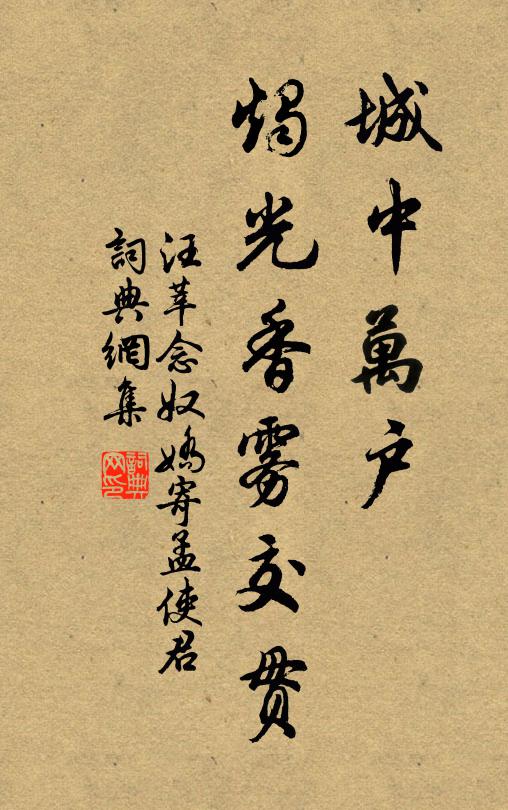 城中萬户
燭光香雾交貫
汪莘念奴嬌寄孟使君
詞典網集
詞典網印